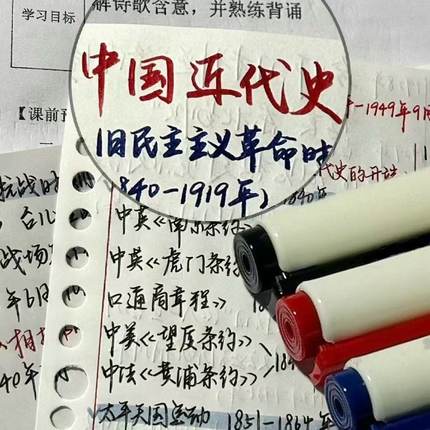 解诗歌含意，并熟练背诵
学习目标
【课前预
中国近代史
-1949年9月
旧民主主义革命时
1840-1919年）
代史的开端
1840年
抗战时
中英《南京条约》
中英《虎门条约》
口通商章程》
中美《望厦条约》
中法《黄埔条约》
战场
年6月
相
40年
太平天国运动 1851-1864年